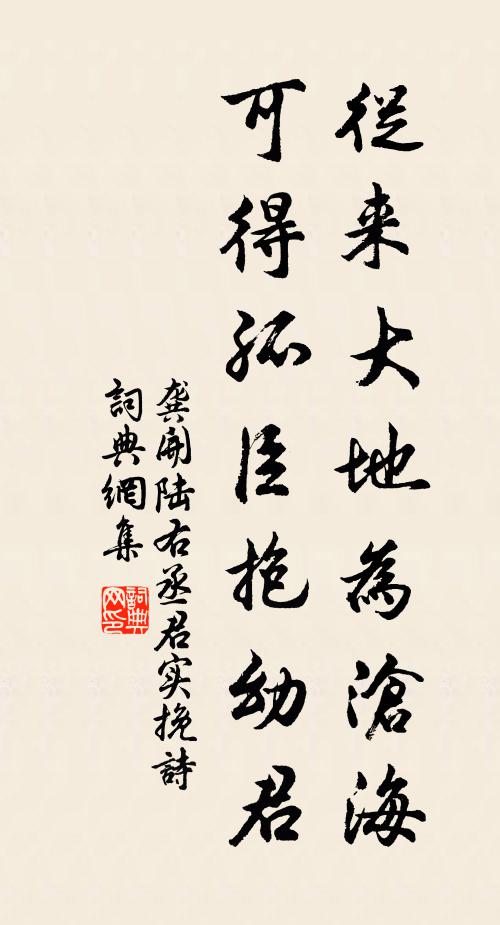 從来大地為滄海
可得孤臣抱幼君
龔開陸右丞君实挽詩
詞典網集
詞典网印